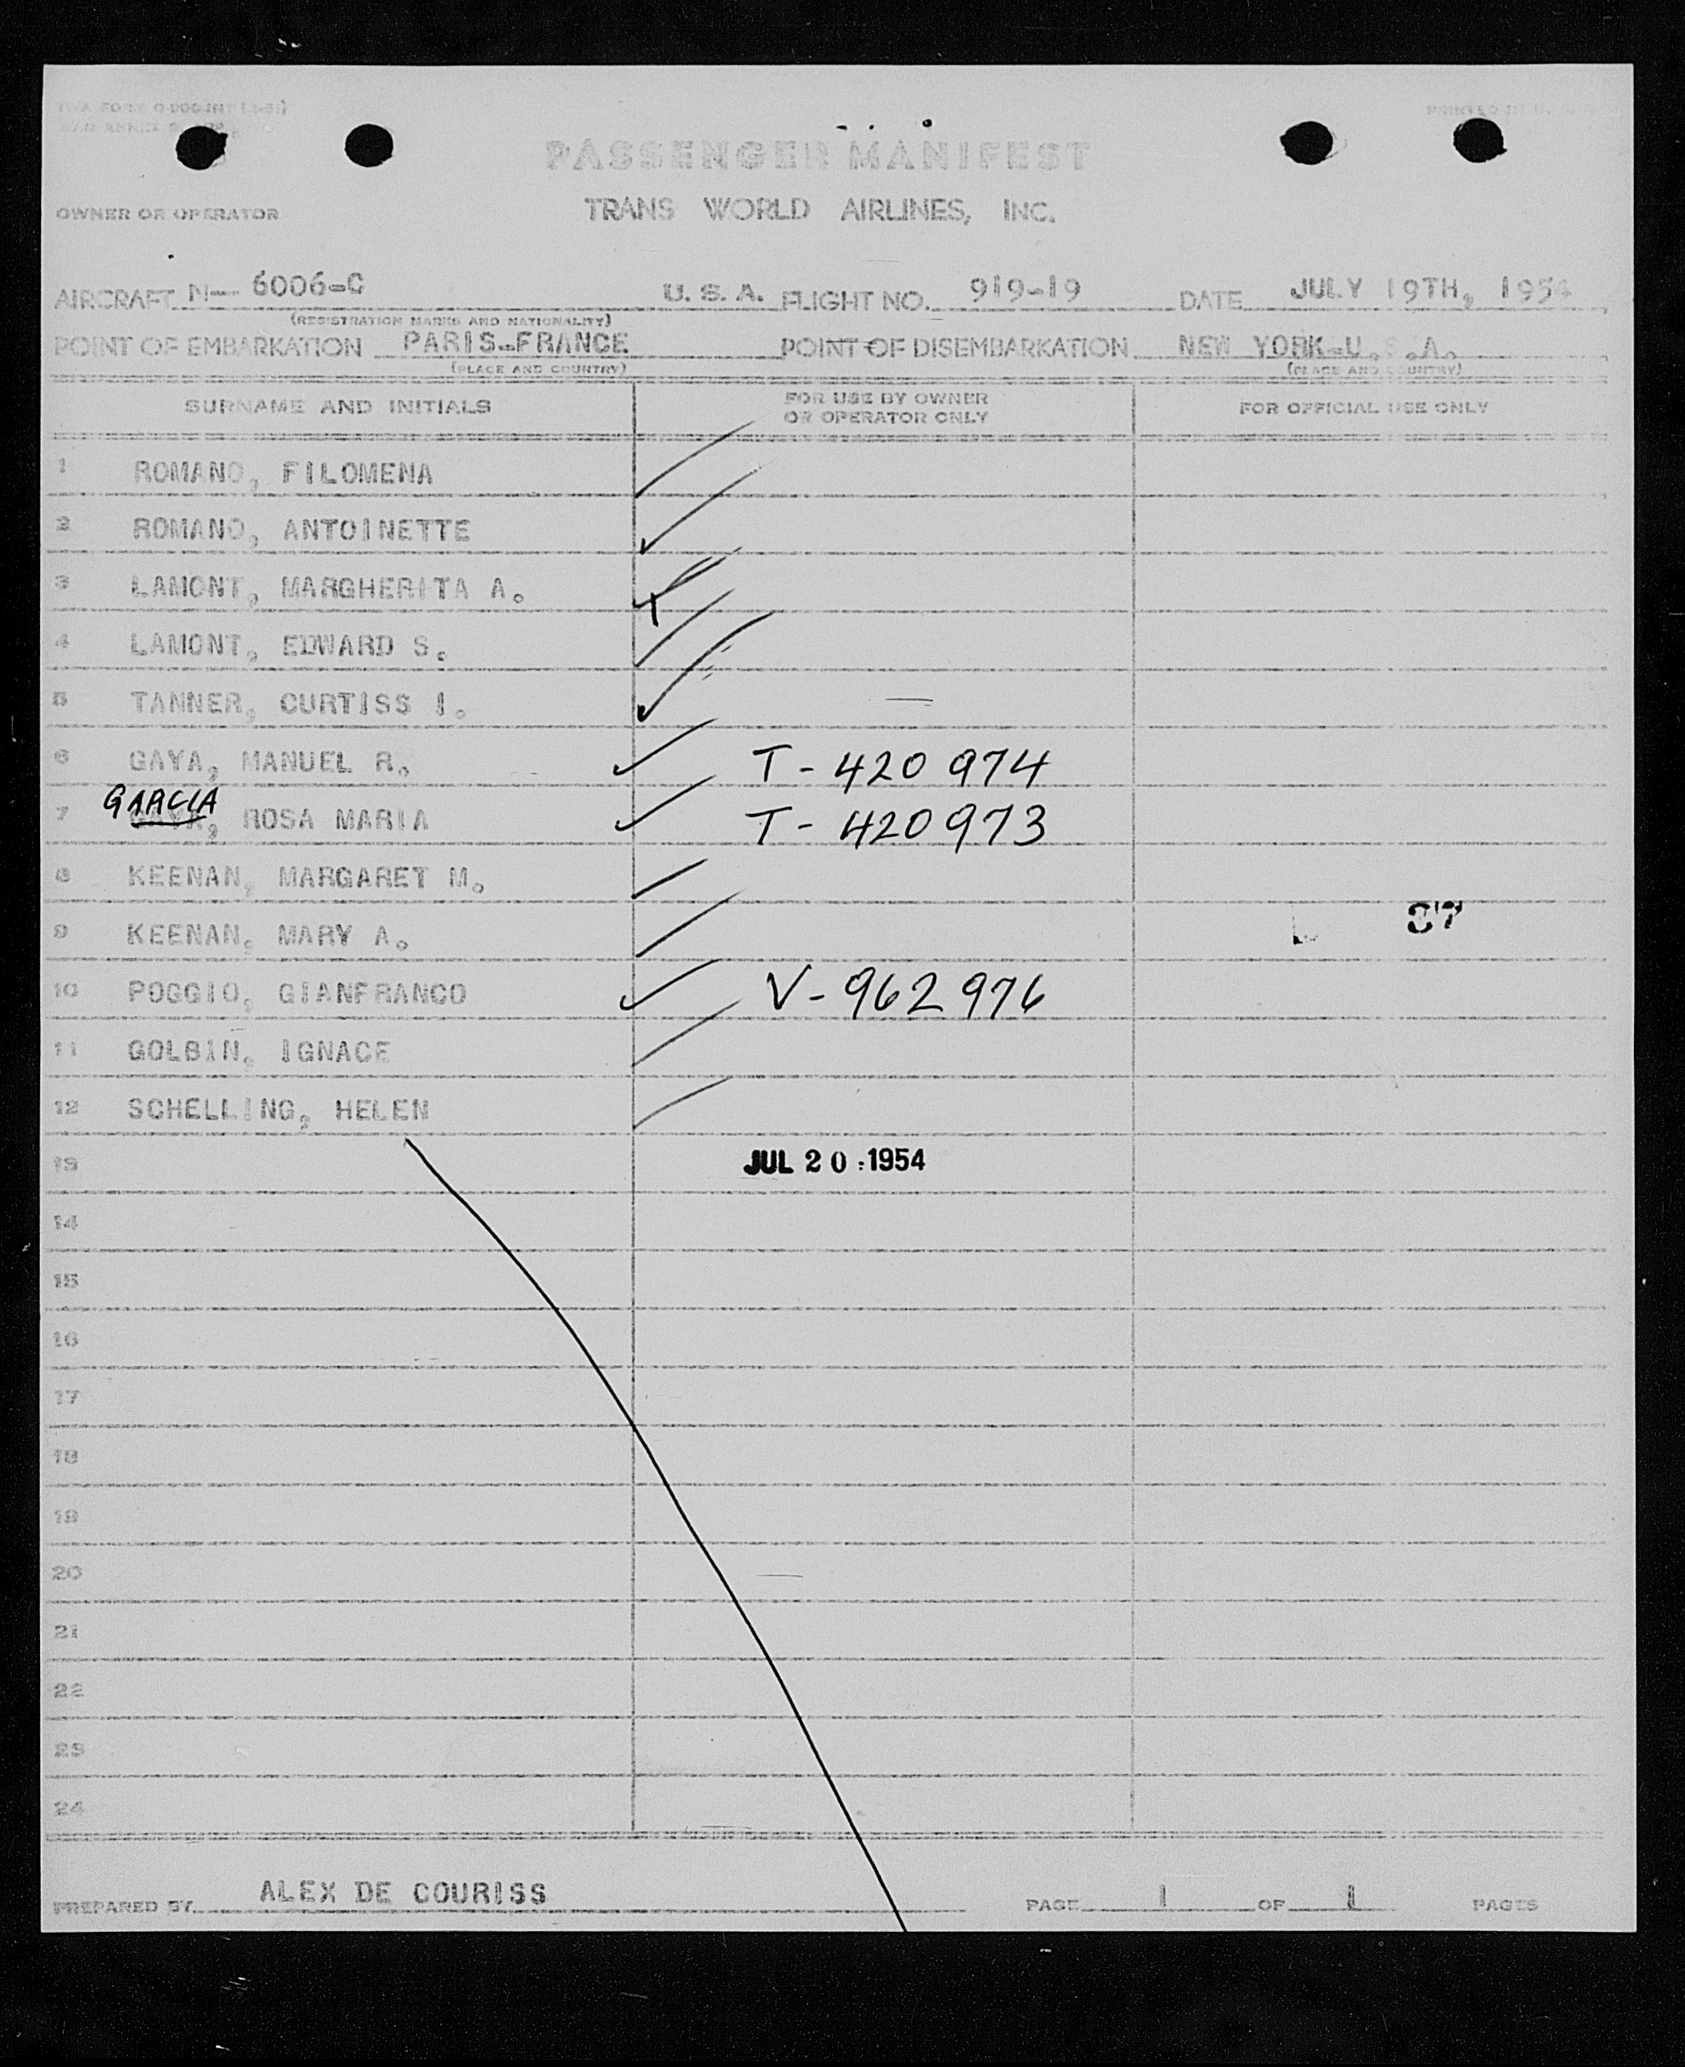 PASSENGER MANIFEST
OWNER OR OPERATOR TRANS WORLD AIRLINES, INC.
AIRCRAFT N- 6006-C U. S. A. FLIGHT NO. 919-19 DATE JULY 19TH, 1954
(REGISTRATION MARKS AND NATIONALITY)
POINT OF EMBARKATION PARIS-FRANCE POINT OF DISEMBARKATION NEW YORK-U.S.A.
(PLACE AND COUNTRY) (PLACE AND COUNTRY)
SURNAME AND INITIALS FOR USE BY OWNER OR OPERATOR ONLY FOR OFFICIAL USE ONLY
1 ROMANO, FILOMENA
2 ROMANO, ANTOINETTE
3 LAMONT, MARGHERITA A.
4 LAMONT, EDWARD S.
5 TANNER, CURTISS I.
6 GAYA, MANUEL R. T-420 974
GARCIA
7 GAYA, ROSA MARIA T-420973
8 KEENAN, MARGARET M.
9 KEENAN, MARY A. 37
10 POGGIO, GIANFRANCO V-962976
11 GOLBIN, IGNACE
12 SCHELLING, HELEN
13 JUL 20 1954
14
15
16
17
18
19
20
21
22
23
24
PREPARED BY ALEX DE COURISS PAGE 1 OF 1 PAGES